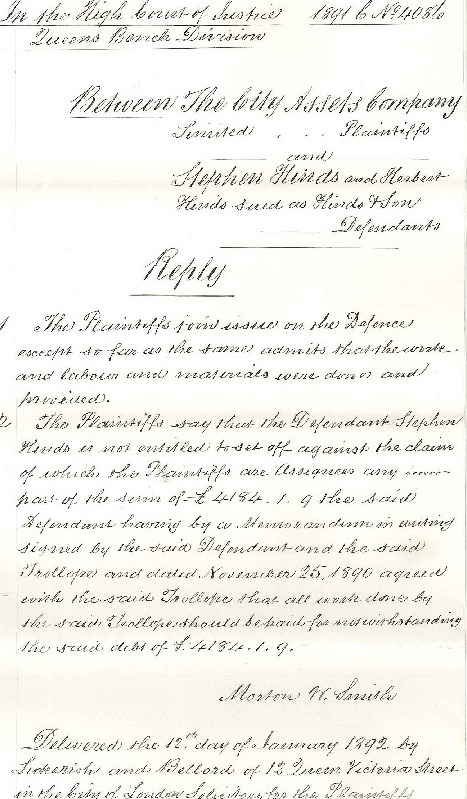 In the High Court of Justice 1891 C No 4086
Queens Bench Division
Between The City Assets Company
Limited . . Plaintiffs
and
Stephen Hinds and Herbert
Hinds sued as Hinds & Son
Defendants
Reply
1 The Plaintiffs join issue on the Defence
except so far as the same admits that the work
and labour and materials were done and
provided.
2 The Plaintiffs say that the Defendant Stephen
Hinds is not entitled to set off against the claim
of which the Plaintiffs are Assignees any
part of the sum of £4184.1.9 the said
Defendant having by a Memorandum in writing
signed by the said Defendant and the said
Trollope and dated November 25, 1890 agreed
with the said Trollope that all work done by
the said Trollope should be paid for notwithstanding
the said debt of £4184.1.9.
Morton W. Smith
Delivered the 12th day of January 1892 by
and Bellord of 12 Queen Victoria Street
in the City of London Solicitors for the Plaintiffs